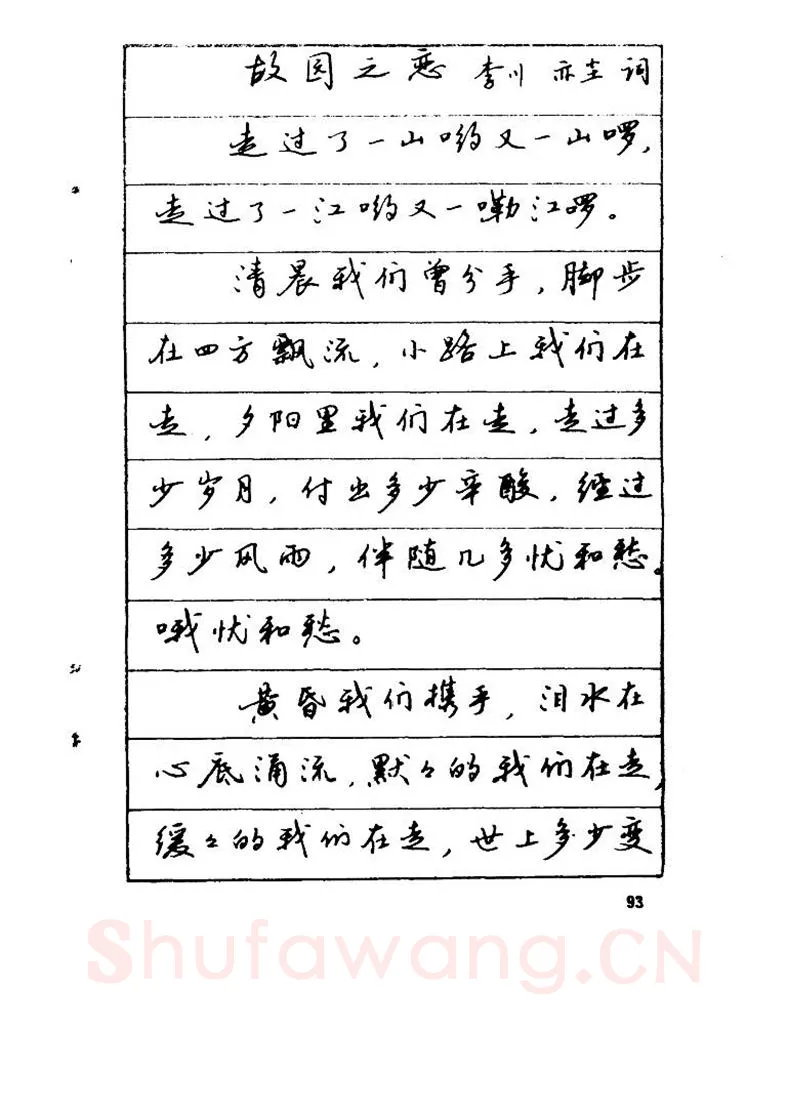 故园之恋 李川 亦尘词
走过了一山哟又一山啰,
走过了一江哟又一嘞江啰。
清晨我们曾分手,脚步
在四方飘流,小路上我们在
走,夕阳里我们在走,走过多
少岁月,付出多少辛酸,经过
多少风雨,伴随几多忧和愁。
哦忧和愁。
黄昏我们携手,泪水在
心底涌流,默々的我们在走,
缓々的我们在走,世上多少变
93
Shufawang.CN